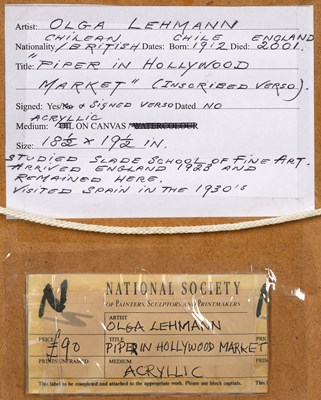 Artist: OLGA LEHMANN
CHILEAN CHILE ENGLAND
Nationality/BRITISH Dates: Born: 1912 Died: 2001.
Title: "PIPER IN HOLLYWOOD
MARKET" (INSCRIBED VERSO).
Signed: Yes/No & SIGNED VERSO Dated NO
ACRYLLIC
Medium: OIL ON CANVAS / WATERCOLOUR
Size: 18½ x 19½ IN.
STUDIED SLADE SCHOOL OF FINE ART.
ARRIVED ENGLAND 1928 AND
REMAINED HERE.
VISITED SPAIN IN THE 1930's
NATIONAL SOCIETY
OF PAINTERS, SCULPTORS AND PRINTMAKERS
N
ARTIST
OLGA LEHMANN
PRICE TITLE
£90 PIPER IN HOLLYWOOD MARKET
PRINTS UNFRAMED MEDIUM
ACRYLLIC
This label to be completed and attached to the appropriate work. Please use block capitals.